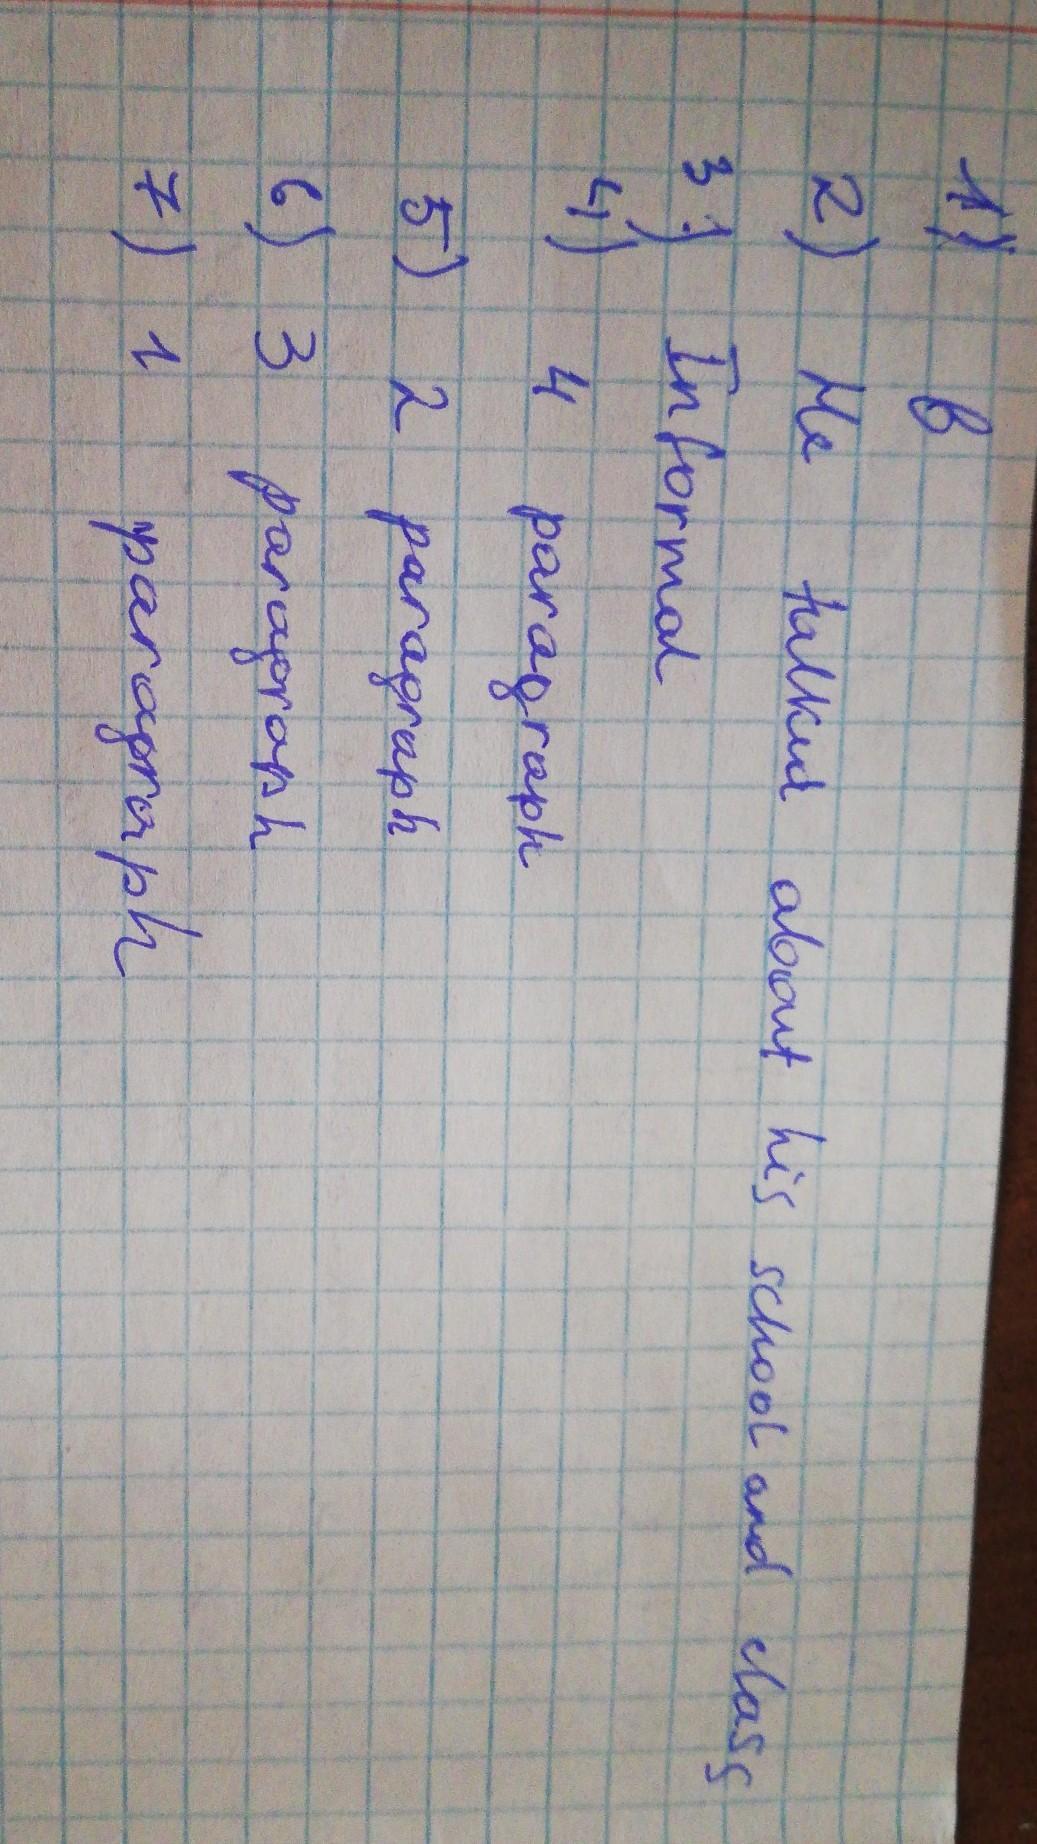 1) B
2) He talked about his school and class
3) Informal
4) 4 paragraph
5) 2 paragraph
6) 3 paragraph
7) 1 paragraph